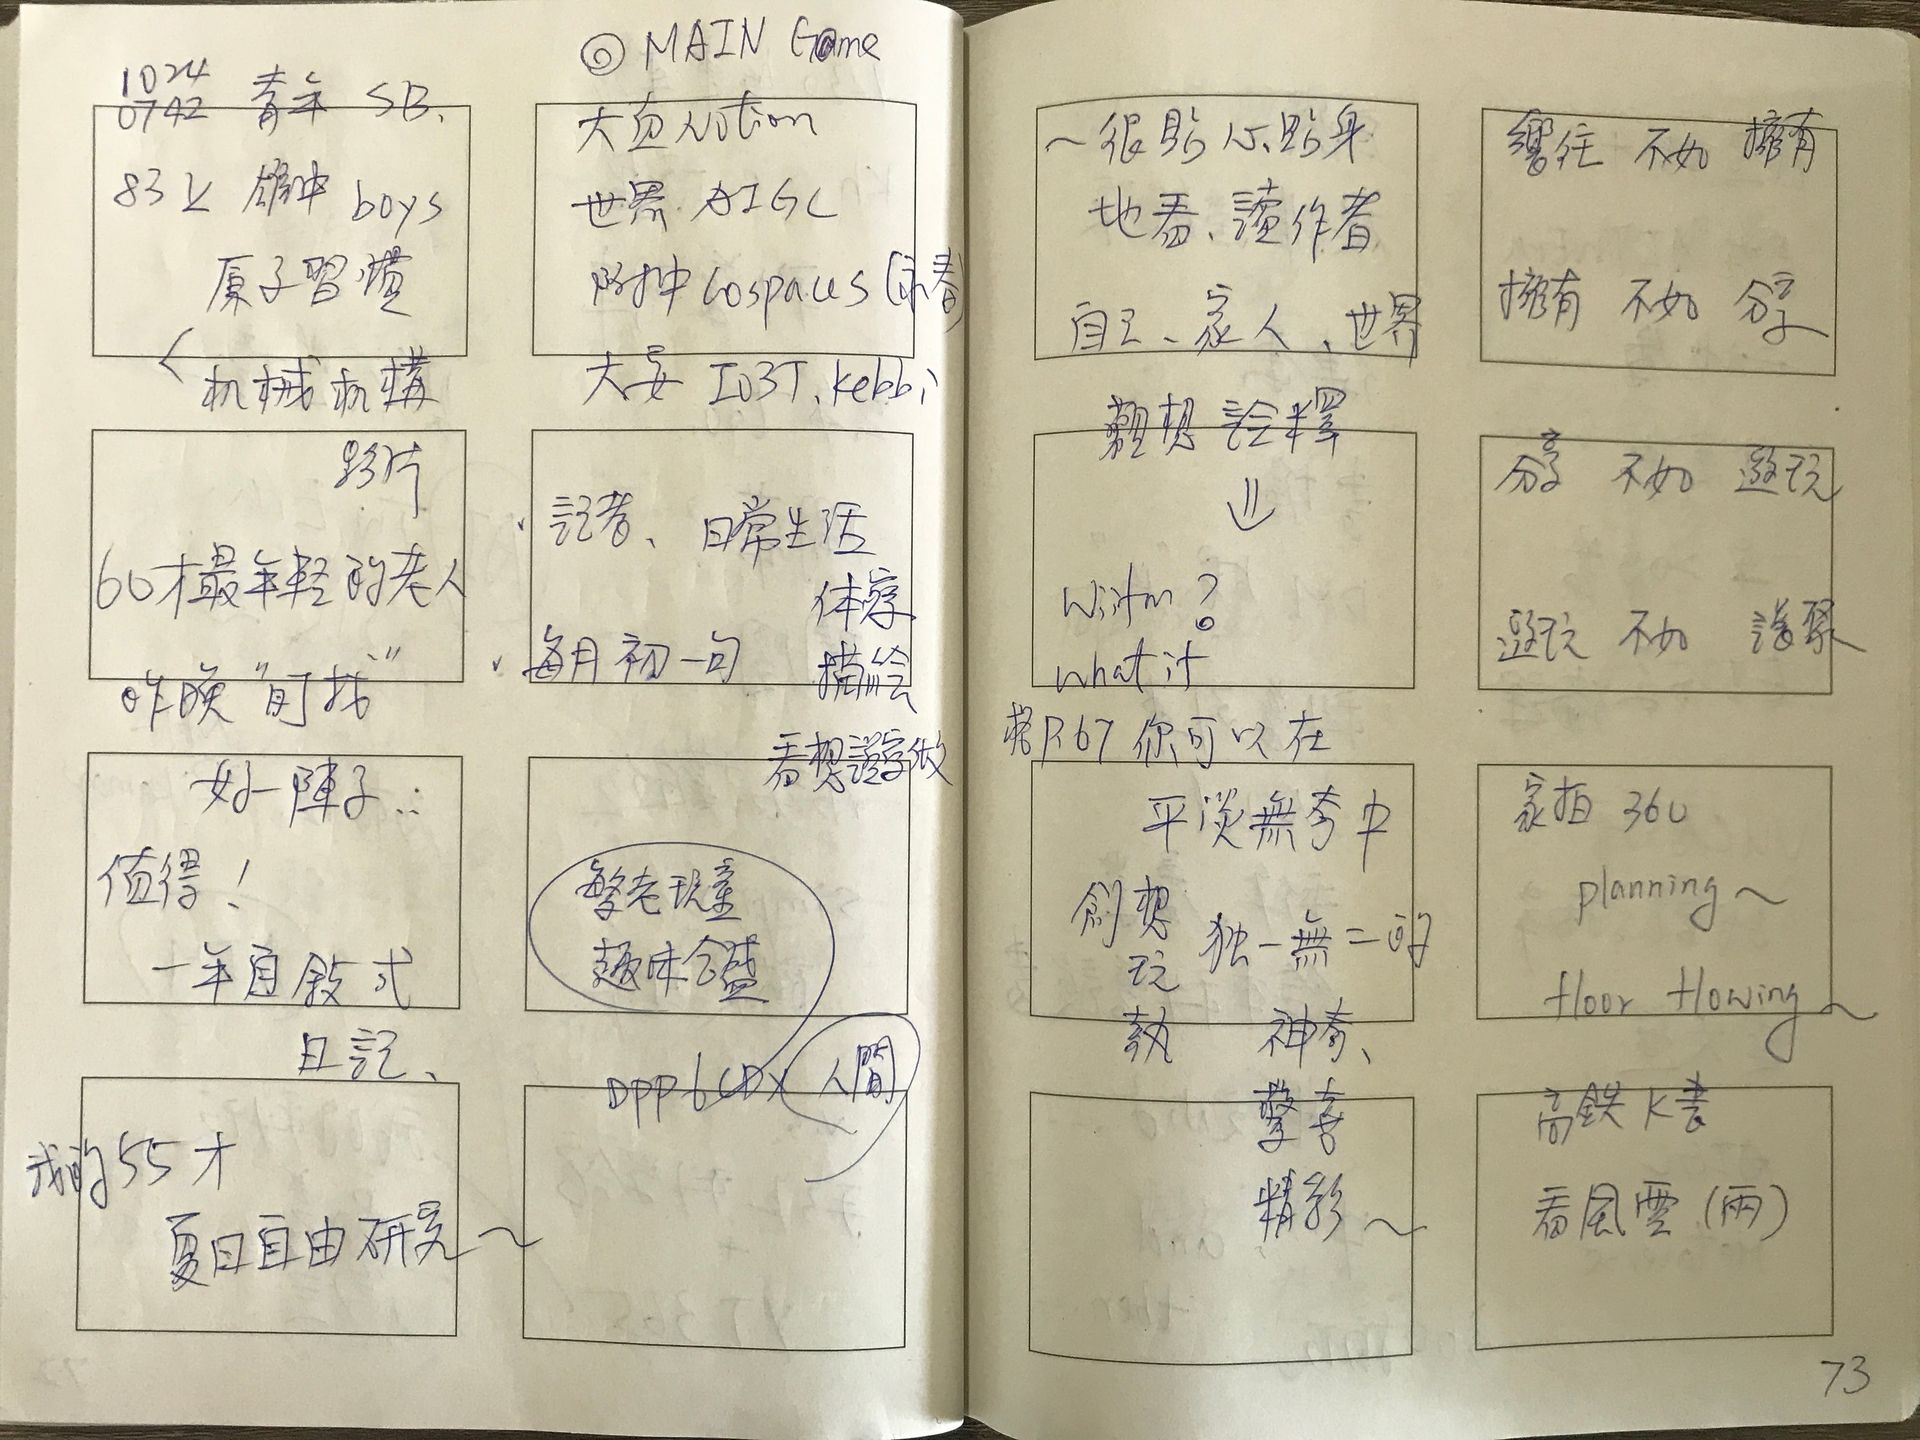 1024
0742 青年 SB.
雄中 boys
原子習慣
机械机構
影片
60才最年軽的老人
昨晚"
好一陣子..
值得!
一年自敘式
日記、
我的55才
夏日自由研究~
◎ MAIN Game
Notion
世界 AIGC
附中 Cospaces
大 IO3T. Kebbi
記者、日常生活
体察
每月初一句 描絵
看想
老玩童
趣味
人間
~很貼心、貼身
地看、讀作者
自己、家人、世界
觀想詮釋
⇓
what if
P.67 你可以在
平淡無奇中
創想 独一無二的
玩
神奇、
驚喜
精彩~
嚮往 不如 擁有
擁有 不如 分享
分享 不如 遊玩
遊玩 不如
家拍 360
planning ~
floor flowing ~
高鉄 K書
看風雲 (雨)
73